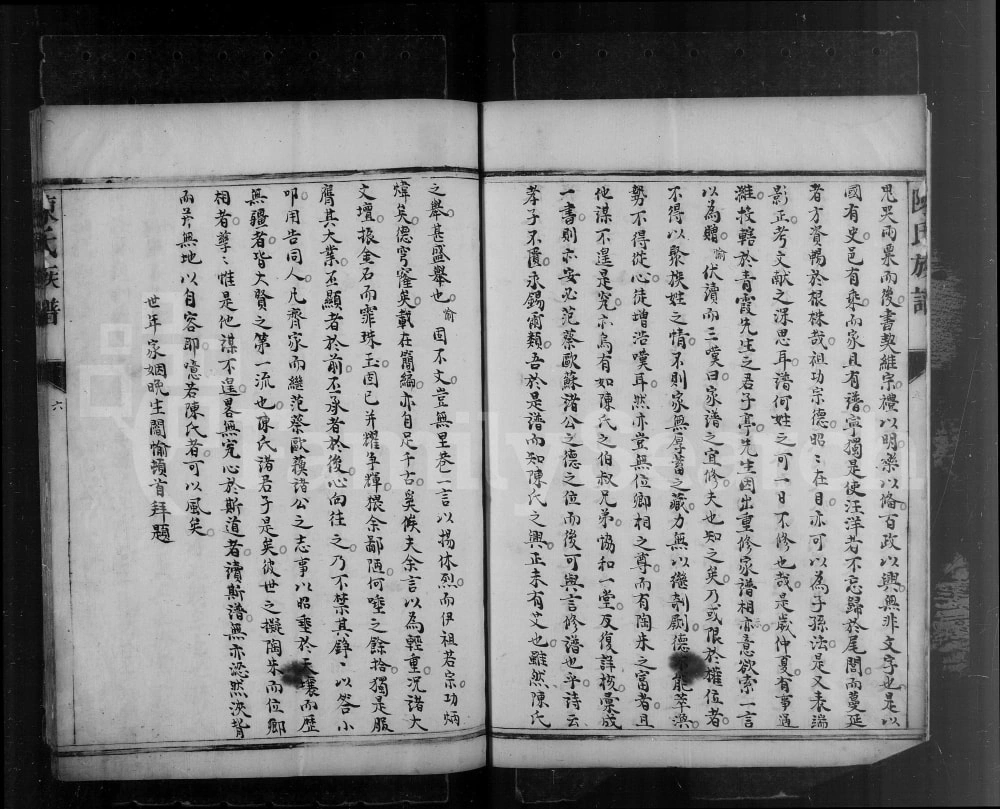 陳氏族譜
鬼哭雨粟而後書契維宗禮以明樂以脩百政以興無非文字也是以
國有史邑有乘而家且有譜寧獨是使汪洋者不忘歸於尾閭而蔓延
者方資暢於根株哉祖功宗德昭〻在目亦可以為子孫法是又表端
影正考文献之深思耳譜何姓之可一日不修也哉是歲仲夏有事過
濰投轄於青霞先生之君子亭先生因出重修家譜相示意欲索一言
以為贈愉伏讀而三嘆曰家譜之宜修夫也知之矣乃或限於權位者
不得以聚族姓之情不則家無厚蓄之藏力無以继剞劂德不能萃渙
勢不得從心徒增浩嘆耳然亦豈無位卿相之尊而有陶朱之富者且
他謀不遑是究亦烏有如陳氏之伯叔兄弟協和一堂反復詳核彙成
一書則亦安必范蔡歐蘇諸公之德之位而後可與言修譜也乎詩云
孝子不匱永錫爾類吾於是譜而知陳氏之興正未有艾也雖然陳氏
之舉甚盛舉也愉固不文豈無里巷一言以揚休烈而伊祖若宗功炳
煒矣德穹窿矣載在簡編亦自足千古奚俟夫余言以為輕重况諸大
文壇振金石而霏珠玉固已并耀爭輝猥余鄙陋何唾之餘拾獨是服
膺其大業丕顯者於前丕承者於後心向往之乃不禁其錚〻以答小
叩用告同人凡齊家而繼范蔡歐蘓諸公之志事以昭垂於天壤而歷
無疆者皆大賢之第一流也陳氏諸君子是矣彼世之擬陶朱而位卿
相者孳〻惟是他謀不遑畧無究心於斯道者讀斯譜無亦恧然浹背
而茫無地以自容耶噫若陳氏者可以風矣
世年家姻晚生閻愉頓首拜題
陳氏族譜
六